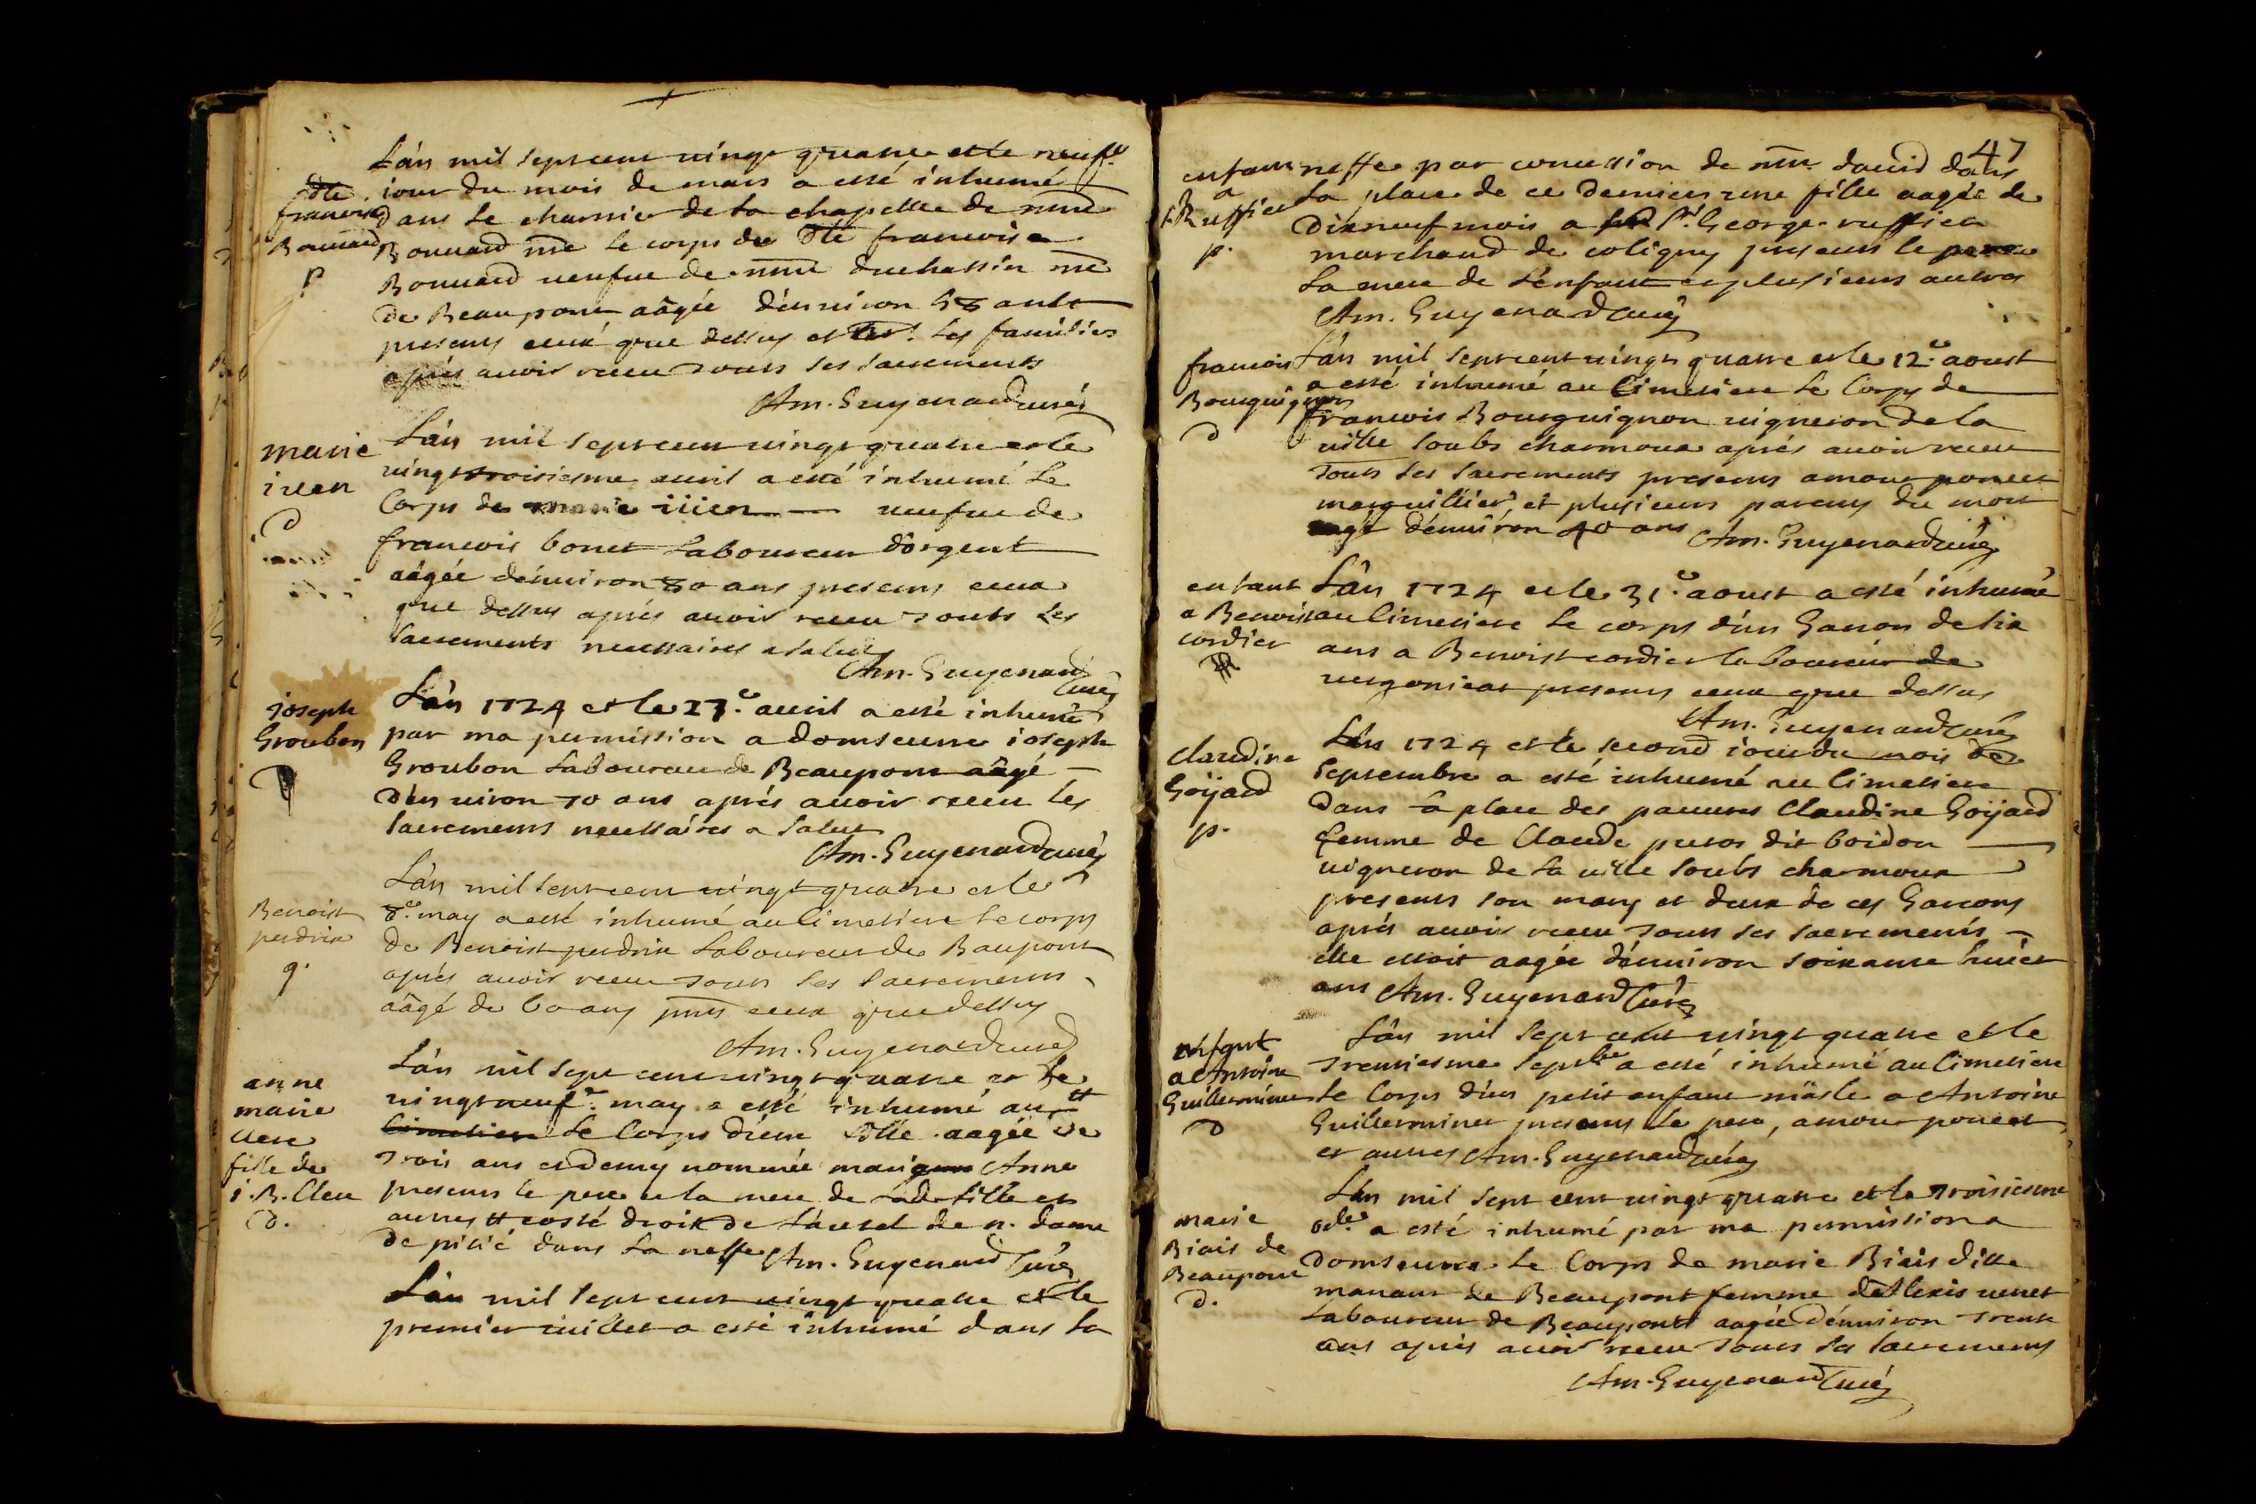 L'an mil sept cent vingt quatre et le neufe
iour du mois de mars a esté inhumé
dans le charnier de la chapelle de
Bonnard me le corps de dlle francoise
Bonnard ueufue de duchassin me
de Beaupont aâgée d'enuiron 58 ants
presens ceux que dessus et les familiers
aprés auoir receu touts les sacrements
Am. Guyenard curé
dlle
francoise
Bonnard
p
L'an mil sept cent vingt quatre et le
vingt troisiesme auril a esté inhumé le
Corps de marie iuen ueufue de
francois bonet laboureur d'orgent
aâgée d'enuiron 80 ans presens ceux
que dessus aprés auoir receu touts les
sacrements necessaires a salut
Am. Guyenard
Curé
marie
iuen
d
L'an 1724 et le 27e auril a esté inhumé
par ma permission a domseure ioseph
Groubon laboureur de Beaupont aâgé
d'en uiron 70 ans aprés auoir receu les
sacremens necessaires a salut
Am. Guyenard curé
ioseph
Groubon
L'an mil sept cent vingt quatre et le
8e may a esté inhumé au Cimetiere le corps
de Benoist perdrix laboureur de Baupont
aprés auoir receu touts les sacremens
aâgé de 60 ans pnts ceux que dessus
Am. Guyenard curé
Benoist
perdrix
g.
L'an mil sept cent vingt quatre et le
vingt neufe may a esté inhumé au #
Cimetiere le Corps d'une fille aagée de
trois ans et demy nommée Anne
presens le pere et la mere de lad. fille et
autres # costé droit de l'autel de n. dame
de pitié dans la neffe Am. Guyenard Curé
anne
marie
Clere
fille de
i. B. Clere
d.
L'an mil sept cent vingt quatre et le
premier iuillet a esté inhumé dans la
47
neffe par concession de david dans
la place de ce dernier une fille aagée de
dixneuf mois a sr George ruffier
marchand de coligny presens le pere
la mere de l'enfant et plusieurs autres
Am. Guyenard Curé
enfant
a
Ruffier
p.
L'an mil sept cent vingt quatre et le 12e aoust
a esté inhumé au Cimetiere le Corps de
francois Bourguignon uigneron de la
uille soubs charmoux aprés auoir receu
touts les sacrements presens amour poncet
marguillier, et plusieurs parens du mort
aagé d'enuiron 40 ans Am. Guyenard curé
francois
Bourguignon
d
L'an 1724 et le 31e aoust a esté inhumé
au Cimetiere le corps d'un Garcon de six
ans a Benoist cordier laboureur de
uergoniat presens ceux que dessus
Am. Guyenard Curé
enfant
a Benoist
cordier
L'an 1724 et le second iour du mois de
septembre a esté inhumé au Cimetiere
dans la place des pauures Claudine Goÿard
femme de Claude putos dit boidon
uigneron de la uille soubs charmoux
presents son mary et deux de ces Garcons
aprés auoir receu touts les sacrements
elle estoit aagée d'enuiron soixante huict
ans Am. Guyenard Curé
Claudine
Goÿard
p.
L'an mil sept cent vingt quatre et le
trentiesme septbre a esté inhumé au Cimetiere
le Corps d'un petit enfant mâsle a Antoine
Guillerminet presens le pere, amour poncet
et autres Am. Guyenard curé
enfant
a Antoine
Guillerminet
d
L'an mil sept cent vingt quatre et le troisiesme
8bre a esté inhumé par ma permission a
domseure le Corps de marie Biais ditte
manant de Beaupont femme d'Alexis uenet
laboureur de Beaupont aagée d'enuiron trente
ans aprés auoir receu touts les sacremens
Am. Guyenard Curé
marie
Biais de
Beaupont
d.